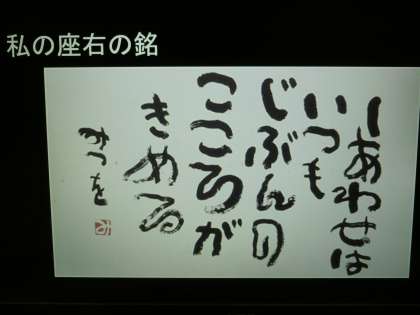 私の座右の銘
しあわせは
いつも
じぶんの
こころが
きめる
みつを
み